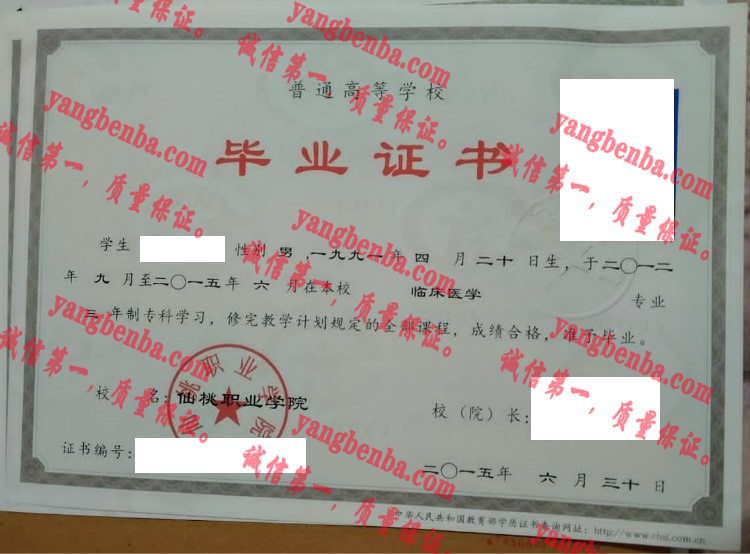 普通高等学校
毕业证书
学生 性别 男 ,一九九一年 四 月 二十 日生，于二〇一二
年 九 月至二〇一五年 六 月在本校 临床医学 专业
三 年制专科学习，修完教学计划规定的全部课程，成绩合格，准予毕业。
校 名：仙桃职业学院
校（院）长：
证书编号：
二〇一五年 六 月 三十 日
中华人民共和国教育部学历证书查询网址：http://www.chsi.com.cn
仙桃职业学院
yangbenba.com
诚信第一，质量保证。
yangbenba.com
诚信第一，质量保证。
yangbenba.com
诚信第一，质量保证。
yangbenba.com
诚信第一，质量保证。
yangbenba.com
诚信第一，质量保证。
yangbenba.com
诚信第一，质量保证。
yangbenba.com
诚信第一，质量保证。
yangbenba.com
诚信第一，质量保证。